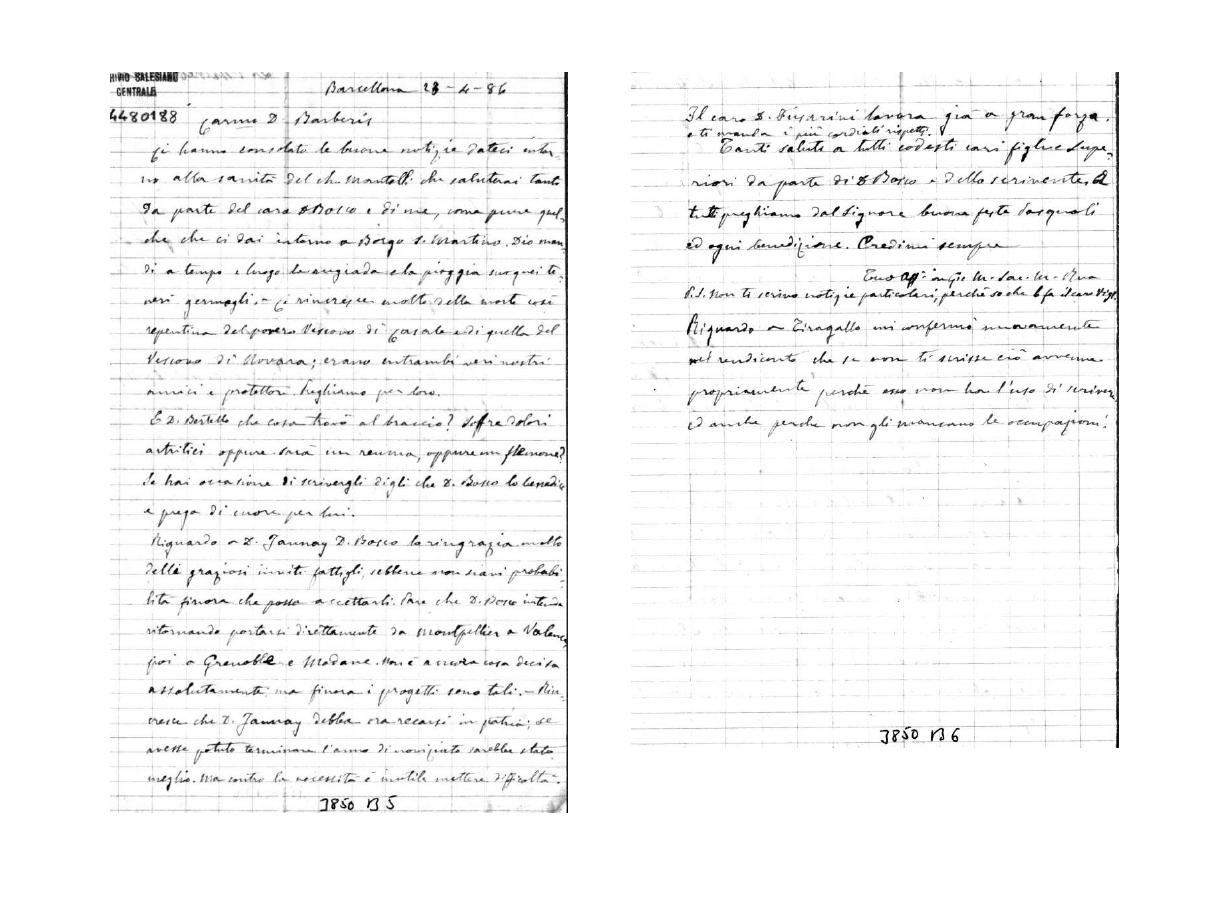 HIVIO SALESIANO
CENTRALE
4480188
Barcellona 23 - 4 - 86
Carmo D. Barberis
Ci hanno consolato le buone notizie dateci intor-
no alla sanità del ch. Mantelli che saluterai tanto
da parte del caro D Bosco e di me, come pure quel-
che che ci dai intorno a Borgo S. Martino. Dio man-
di a tempo e luogo la rugiada e la pioggia su quei te-
neri germogli. - Ci rincresce molto della morte così
repentina del povero Vescovo di Casale e di quella del
Vescovo di Novara; erano entrambi veri nostri
amici e protettori. Preghiamo per loro.
E D. Bertello che cosa trovò al braccio? Soffre dolori
artritici oppure sarà un reuma, oppure un flemone?
Se hai occasione di scrivergli digli che D. Bosco lo benedice
e prega di cuore per lui.
Riguardo a D. Jaunay D. Bosco la ringrazia molto
delle graziosi inviti fattigli, sebbene non siavi probabi-
lità finora che possa accettarli. Pare che D. Bosco intenda
ritornando portarsi direttamente da Montpellier a Valence,
poi a Grenoble e Modane. Non è ancora cosa decisa
assolutamente ma finora i progetti sono tali. - Rin-
cresce che D. Jaunay debba ora recarsi in patria; se
avesse potuto terminare l'anno di noviziato sarebbe stato
meglio. Ma contro la necessità è inutile mettere difficoltà.
3850 B 5
Il caro D. Fusarini lavora già a gran forza.
e ti manda i più cordiali rispetti.
Tanti saluti a tutti codesti cari figli e Supe-
riori da parte di D Bosco e dello scrivente. A
tutti preghiamo dal Signore buone feste Pasquali
ed ogni benedizione. Credimi sempre
Tuo aff. in G. e M. Sac. M. Rua
P.S. Non ti scrivo notizie particolari, perchè so che le fa il caro Vigl.
Riguardo a Tiragallo mi confermò nuovamente
nel rendiconto che se non ti scrisse ciò avvenne
propriamente perchè esso non ha l'uso di scrivere
ed anche perchè non gli mancano le occupazioni.
3850 B 6